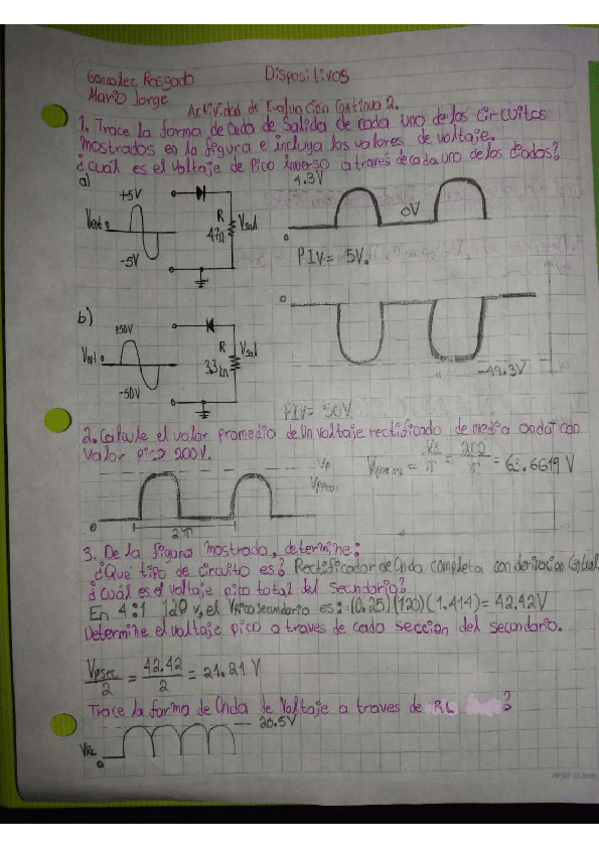 Dispositivos
Gonzalez Rasgado
Mario Jorge
Actividad de Evaluación Continua 2.
1. Trace la forma de Onda de Salida de cada uno de los Circuitos
mostrados en la figura e incluya los valores de voltaje.
¿cuál es el Voltaje de Pico inverso a través de cada uno de los diodos?
a)
+5V
-5V
R
47Ω
Vsal
4.3V
0V
0
PIV = 5V.
b)
+50V
-50V
R
3.3 kΩ
Vsal
0
-49.3V
PIV = 50V
2. Calcule el valor promedio de Un Voltaje rectificado de media onda con
valor pico 200V.
Vp
0
2π
= Vp/π = 200/π = 63.6619 V
3. De la figura mostrada, determine:
¿Qué tipo de circuito es? Rectificador de Onda completa con derivación Central.
¿cuál es el voltaje pico total del secundario?
En 4:1 120 v, el Vpico secundario es: (0.25)(120)(1.414) = 42.42V
Determine el voltaje pico a traves de cada sección del secundario.
Vpsec/2 = 42.42/2 = 21.21 V
Trace la forma de Onda de Voltaje a traves de RL ?
20.5V
VRL
0